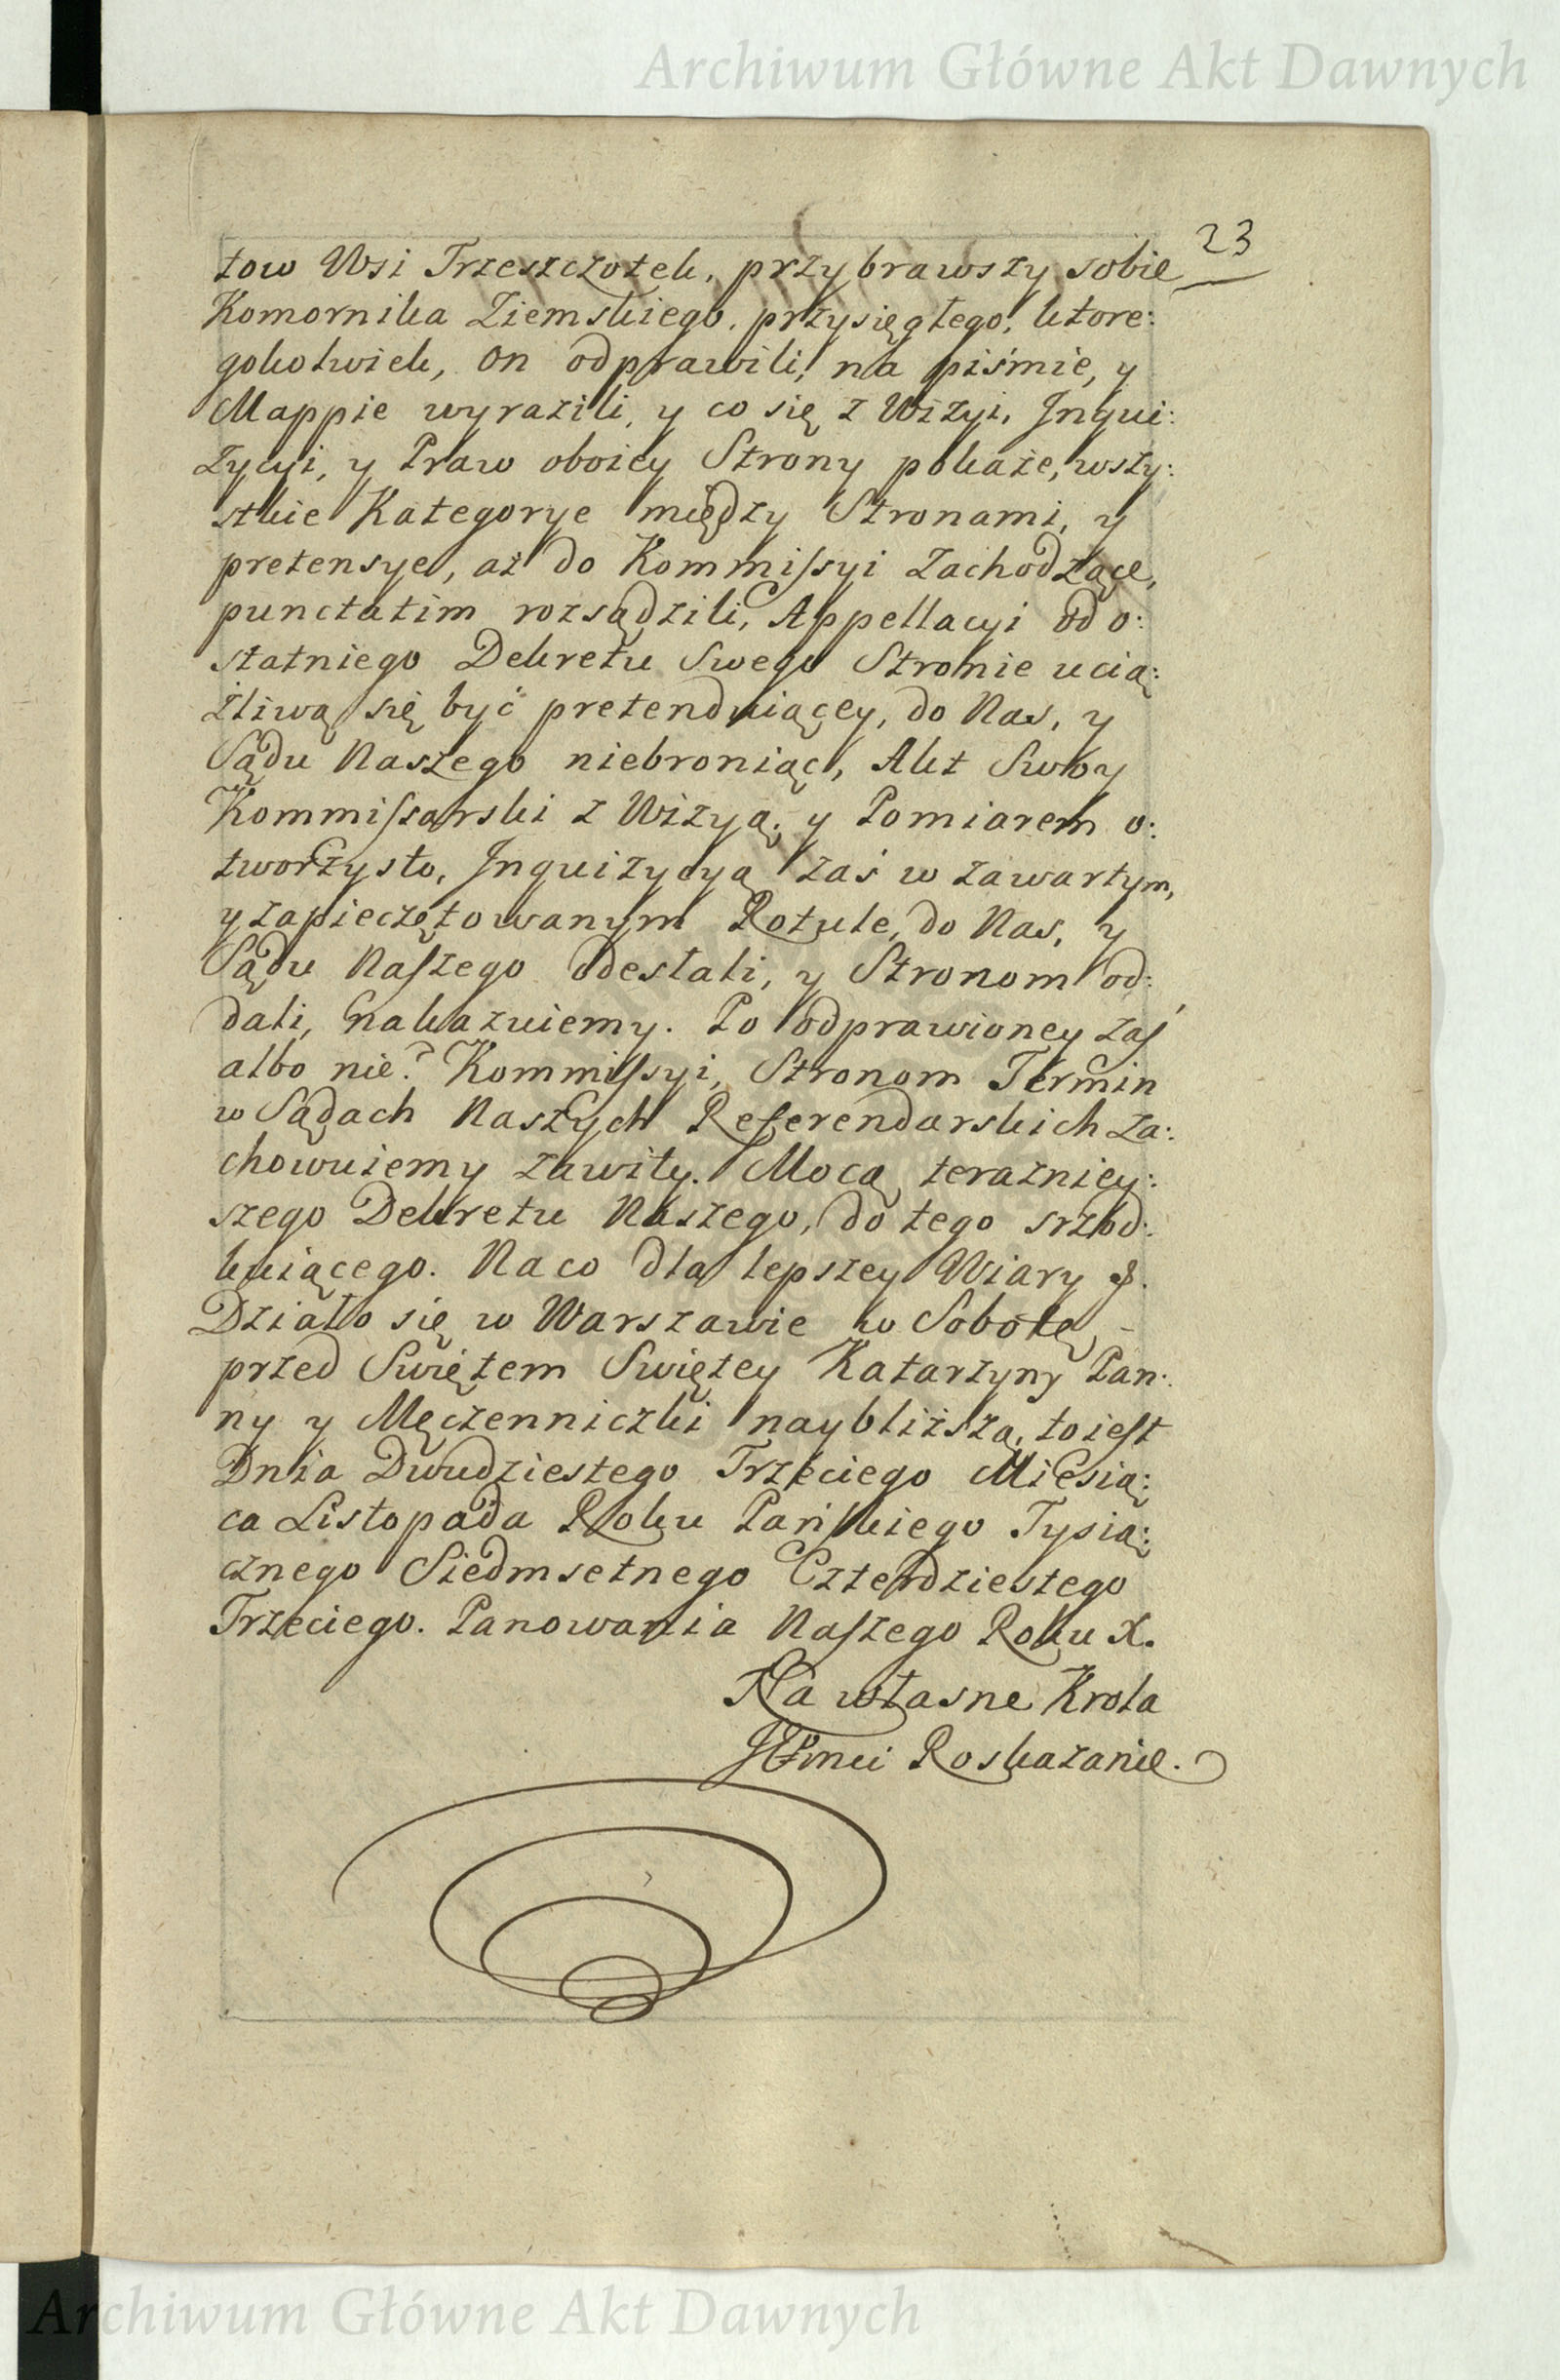 Archiwum Główne Akt Dawnych
23
tow Wsi Trzeszczotek, przybrawszy sobie
Komornika Ziemskiego, przysięgłego, ktore:
gokolwiek, on odprawili, na piśmie, y
Mappie wyrazili, y co się z Wizyi, Inqui:
zycyi, y Praw oboiey Strony pokaże, wszy:
stkie Kategorye między Stronami, y
pretensye, aż do Kommiſsyi zachodzące,
punctatim rozsądzili, Appellacyi od o:
statniego Dekretu Swego Stronie ucią:
żliwą się być pretenduiącey, do Nas, y
Sądu Naszego niebroniąc, Akt Swoy
Kommiſsarski z Wizyą, y Pomiarem o:
tworzysto, Inquizycyą zaś w zawartym,
y zapieczętowanym Rotule, do Nas, y
Sądu Naſzego odesłali, y Stronom od:
dali, nakazuiemy. Po odprawioney zaś
albo nie? Kommiſsyi, Stronom Termin
w Sądach Naszych Referendarskich za:
chowuiemy zawity. Mocą terazniey:
szego Dekretu Naszego, do tego srzod:
kuiącego. Na co dla lepszey Wiary &.
Działo się w Warszawie w Sobotę
przed Swiętem Swiętey Katarzyny Pan:
ny y Męczenniczki naybliższą, to ieſt
Dnia Dwudziestego Trzeciego Miesią:
ca Listopada Roku Pańſkiego Tysią:
cznego Siedmsetnego Czterdziestego
Trzeciego. Panowania Naſzego Roku X.
Na własne Krola
JPmci Roskazanie.
Archiwum Główne Akt Dawnych